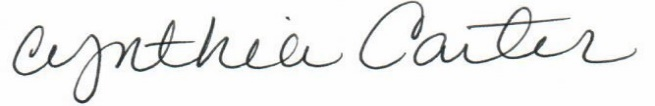 Cynthia Carter